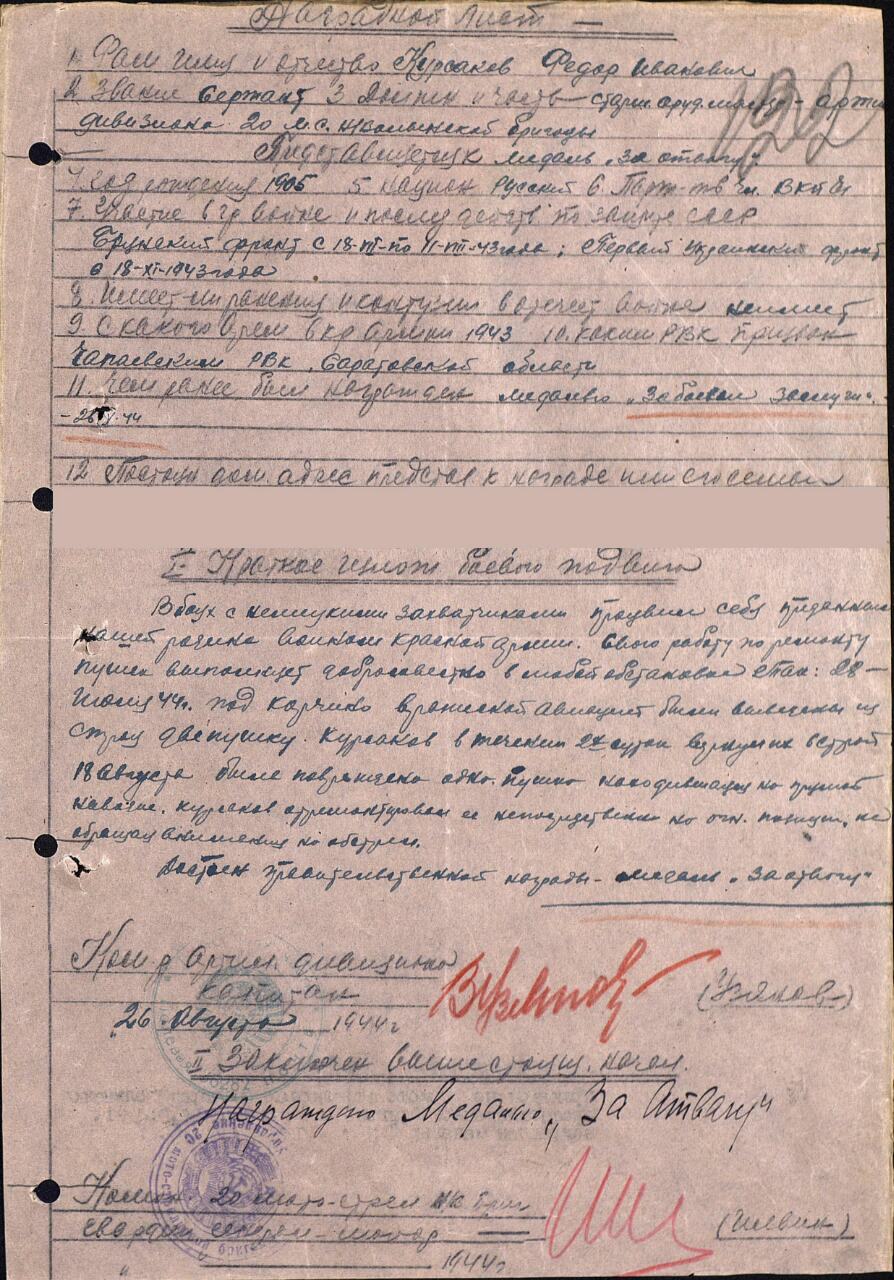 Наградной лист
1. Фам имя и отчество Курсаков Федор Иванович
2. Звание Сержант 3 Должн и часть старш. оруд. мастер - артил
дивизиона 20 м.с. бригады
Представляется к медаль „За отвагу"
4. год рождения 1905 5 национ Русский 6. Парт-
7. Участие в гр войне и послед действ по защите СССР
Брянский фронт с 18- по 11- 43 года; Первый Украинский фронт
с 18-XI-1943 года
8. Имеет-ли ранения и контузии в отечест войне неимеет
9. С какого врем в кр армии 1943 10. каким РВК призван
Чапаевским РВК, Саратовской области
11. Чем ранее был награжден медалью „За боевые заслуги".
44
12 Постоян дом. адрес представ. к награде или его семьи
I- Краткое излож боевого подвига
В боях с немецкими захватчиками проявил себя преданным
нашей родине воином красной армии. Свою работу по ремонту
пушек выполняет добросовестно в любой обстановке Так: 28-
июля 44г. под вражеской авиацией были выведены из
строя две пушки. Курсаков в течении 2х суток вернул их в строй
18 Августа была повреждена одна пушка находившаяся на прямой
наводке. Курсаков отремонтировал ее непосредственно на огн. позиции, не
обращая внимения на обстрел.
Достоен правительственной награды - медаль „За отвагу"
Ком-р Артил. дивизиона
Капитан (Узяков)
26 Августа 1944 г
II Заключен вышестоящ. начал.
Награждаю Медалью „За Атвагу"
Коман 20 мото-стрел бриг
гвардии генерал-майор (Ильин)
1944 г
122